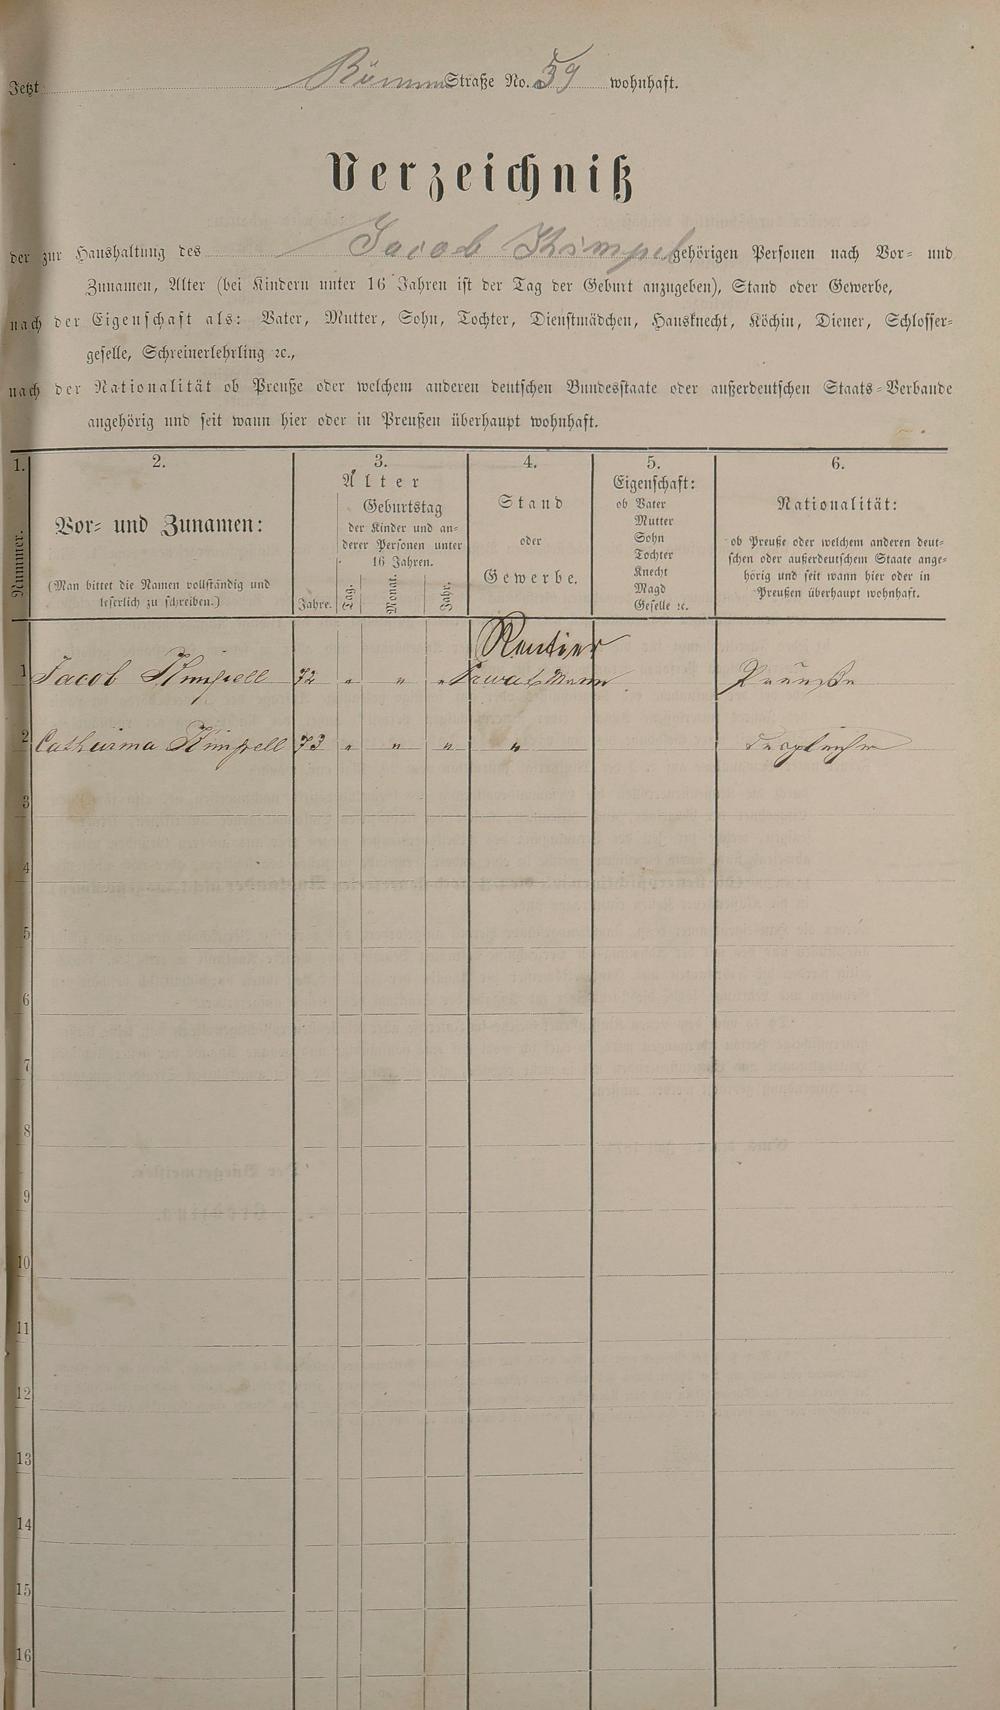 Jetzt Römer Straße No. 59 wohnhaft.
Verzeichniß
der zur Haushaltung des Jacob Kimpel gehörigen Personen nach Vor- und
Zunamen, Alter (bei Kindern unter 16 Jahren ist der Tag der Geburt anzugeben), Stand oder Gewerbe,
nach der Eigenschaft als: Vater, Mutter, Sohn, Tochter, Dienstmädchen, Hausknecht, Köchin, Diener, Schlosser-
geselle, Schreinerlehrling ꝛc.,
nach der Nationalität ob Preuße oder welchem anderen deutschen Bundesstaate oder außerdeutschen Staats-Verbande
angehörig und seit wann hier oder in Preußen überhaupt wohnhaft.
1.
Nummer.
2.
Vor- und Zunamen:
(Man bittet die Namen vollständig und
leserlich zu schreiben.)
3.
Alter
Jahre.
Geburtstag
der Kinder und an-
derer Personen unter
16 Jahren.
Tag.
Monat.
Jahr.
4.
Stand
oder
Gewerbe.
5.
Eigenschaft:
ob Vater
Mutter
Sohn
Tochter
Knecht
Magd
Geselle ꝛc.
6.
Nationalität:
ob Preuße oder welchem anderen deut-
schen oder außerdeutschem Staate ange-
hörig und seit wann hier oder in
Preußen überhaupt wohnhaft.
Rentier
1 Jacob Kimpell 72 " " " Privat Mann Preuße
2 Catharina Kimpell 73 " " " "
3
4
5
6
7
8
9
10
11
12
13
14
15
16